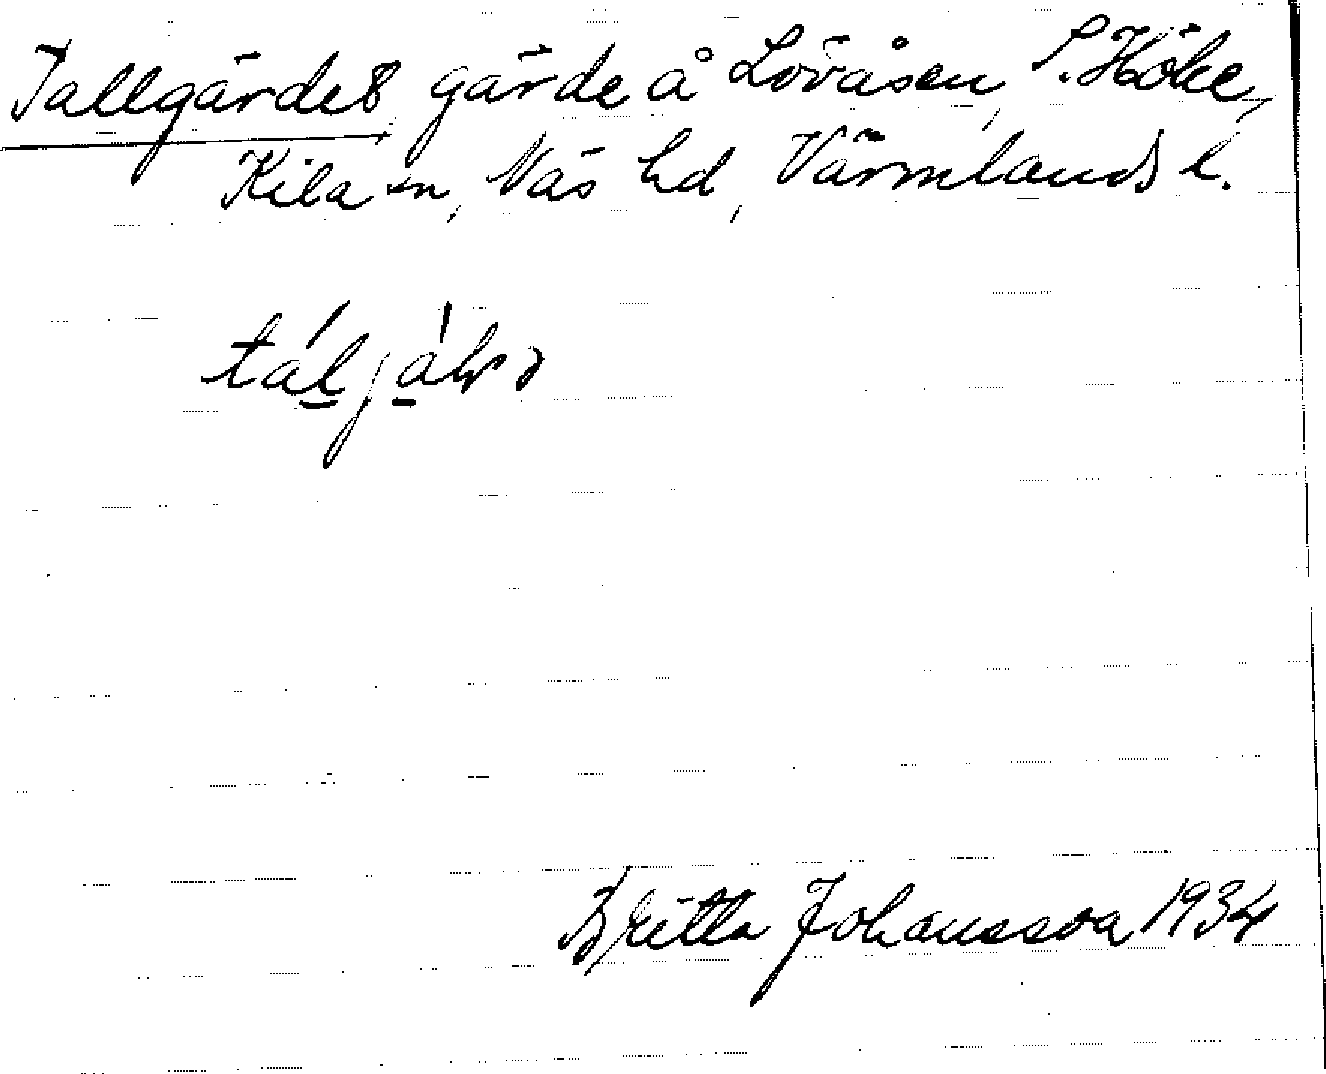 Tallgärdet gärde å Lövåsen, S. Höke,
Kila sn, Näs hd, Värmlands l.
Britta Johansson 1934